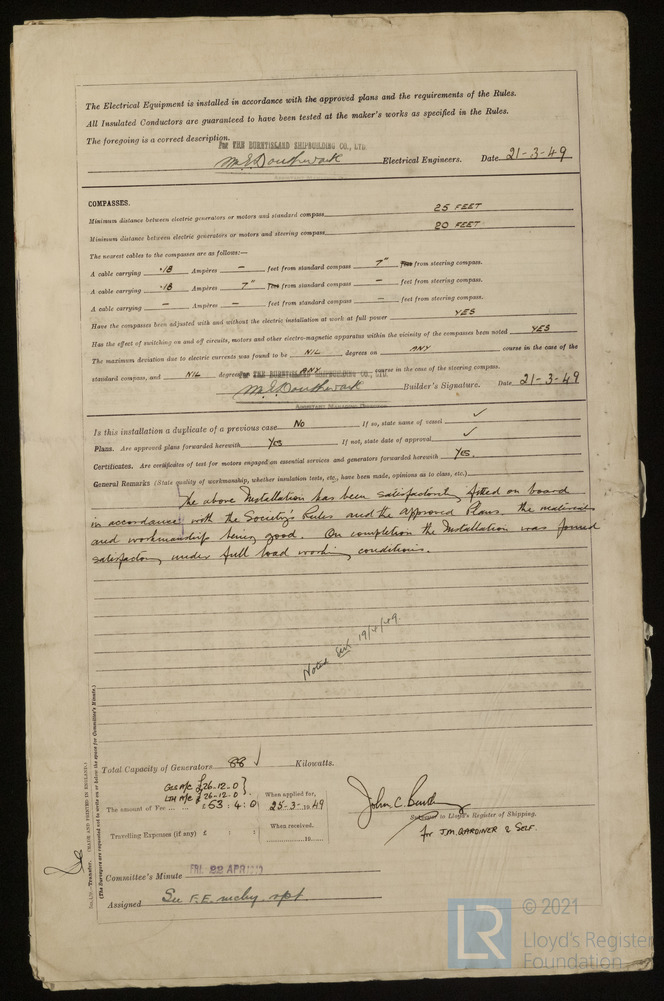 The Electrical Equipment is installed in accordance with the approved plans and the requirements of the Rules.
All Insulated Conductors are guaranteed to have been tested at the maker's works as specified in the Rules.
The foregoing is a correct description.
For THE BURNTISLAND SHIPBUILDING CO., LTD.
Electrical Engineers. Date 21-3-49
COMPASSES.
Minimum distance between electric generators or motors and standard compass 25 FEET
Minimum distance between electric generators or motors and steering compass 20 FEET
The nearest cables to the compasses are as follows:—
A cable carrying ·18 Ampères — feet from standard compass 7" feet from steering compass.
A cable carrying ·18 Ampères 7" feet from standard compass — feet from steering compass.
A cable carrying — Ampères — feet from standard compass — feet from steering compass.
Have the compasses been adjusted with and without the electric installation at work at full power YES
Has the effect of switching on and off circuits, motors and other electro-magnetic apparatus within the vicinity of the compasses been noted YES
The maximum deviation due to electric currents was found to be NIL degrees on ANY course in the case of the
standard compass, and NIL degrees on ANY course in the case of the steering compass.
For THE BURNTISLAND SHIPBUILDING CO., LTD.
Builder's Signature. Date 21-3-49
Is this installation a duplicate of a previous case No If so, state name of vessel ✓
Plans. Are approved plans forwarded herewith Yes If not, state date of approval ✓
Certificates. Are certificates of test for motors engaged on essential services and generators forwarded herewith Yes.
General Remarks (State quality of workmanship, whether insulation tests, etc., have been made, opinions as to class, etc.)
The above Installation has been satisfactorily fitted on board
in accordance with the Society's Rules and the approved Plans. The materials
and workmanship being good. On completion the Installation was found
satisfactory under full load working conditions.
Noted 19/4/49
Total Capacity of Generators 88 ✓ Kilowatts.
£26-12-0
£26-12-0
The amount of Fee ... ... £53 : 4 : 0
When applied for,
25-3-1949
Travelling Expenses (if any) £ : :
When received,
19
John C.
Surveyor to Lloyd's Register of Shipping.
for J.M. GARDINER & SELF.
Committee's Minute FRI. 22 APR 1949
Assigned See F.E. mchy. rpt.
(MADE AND PRINTED IN ENGLAND.)
Transfer.
(The Surveyors are requested not to write on or below the space for Committee's Minute.)
LR
© 2021
Lloyd's Register
Foundation